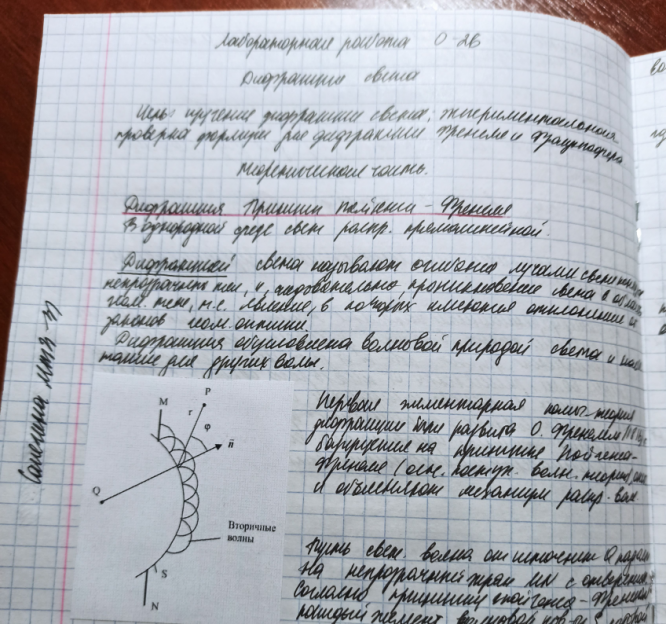 Лабораторная работа О-2В
Дифракция света
Цель: изучение дифракции света, экспериментальная
проверка формулы для дифракции Френеля и Фраунгофера
Теоретическая часть.
Дифракция Принцип Гюйгенса - Френеля
В однородной среде свет распр. прямолинейной.
Дифракцией света называют огибание лучами света
непрозрачных тел, и, следовательно проникновение света в
тени, т.е. явление, в которых имеются отклонения
законов геом оптики.
Дифракция обусловлена волновой природой света и
для других волн.
Первая элементарная теория
дифракции была развита О. Френелем
базируется на принципе Гюйгенса-
Френеля (осн. постул. волн. теории)
и объясняет механизм распр. волн
P
M
r
φ
n
Q
Вторичные
волны
S
N
Пусть свет. волна от источника Q
на непрозрачный экран MN с
Согласно принципа Гюйгенса - Френеля
каждый элемент волновой